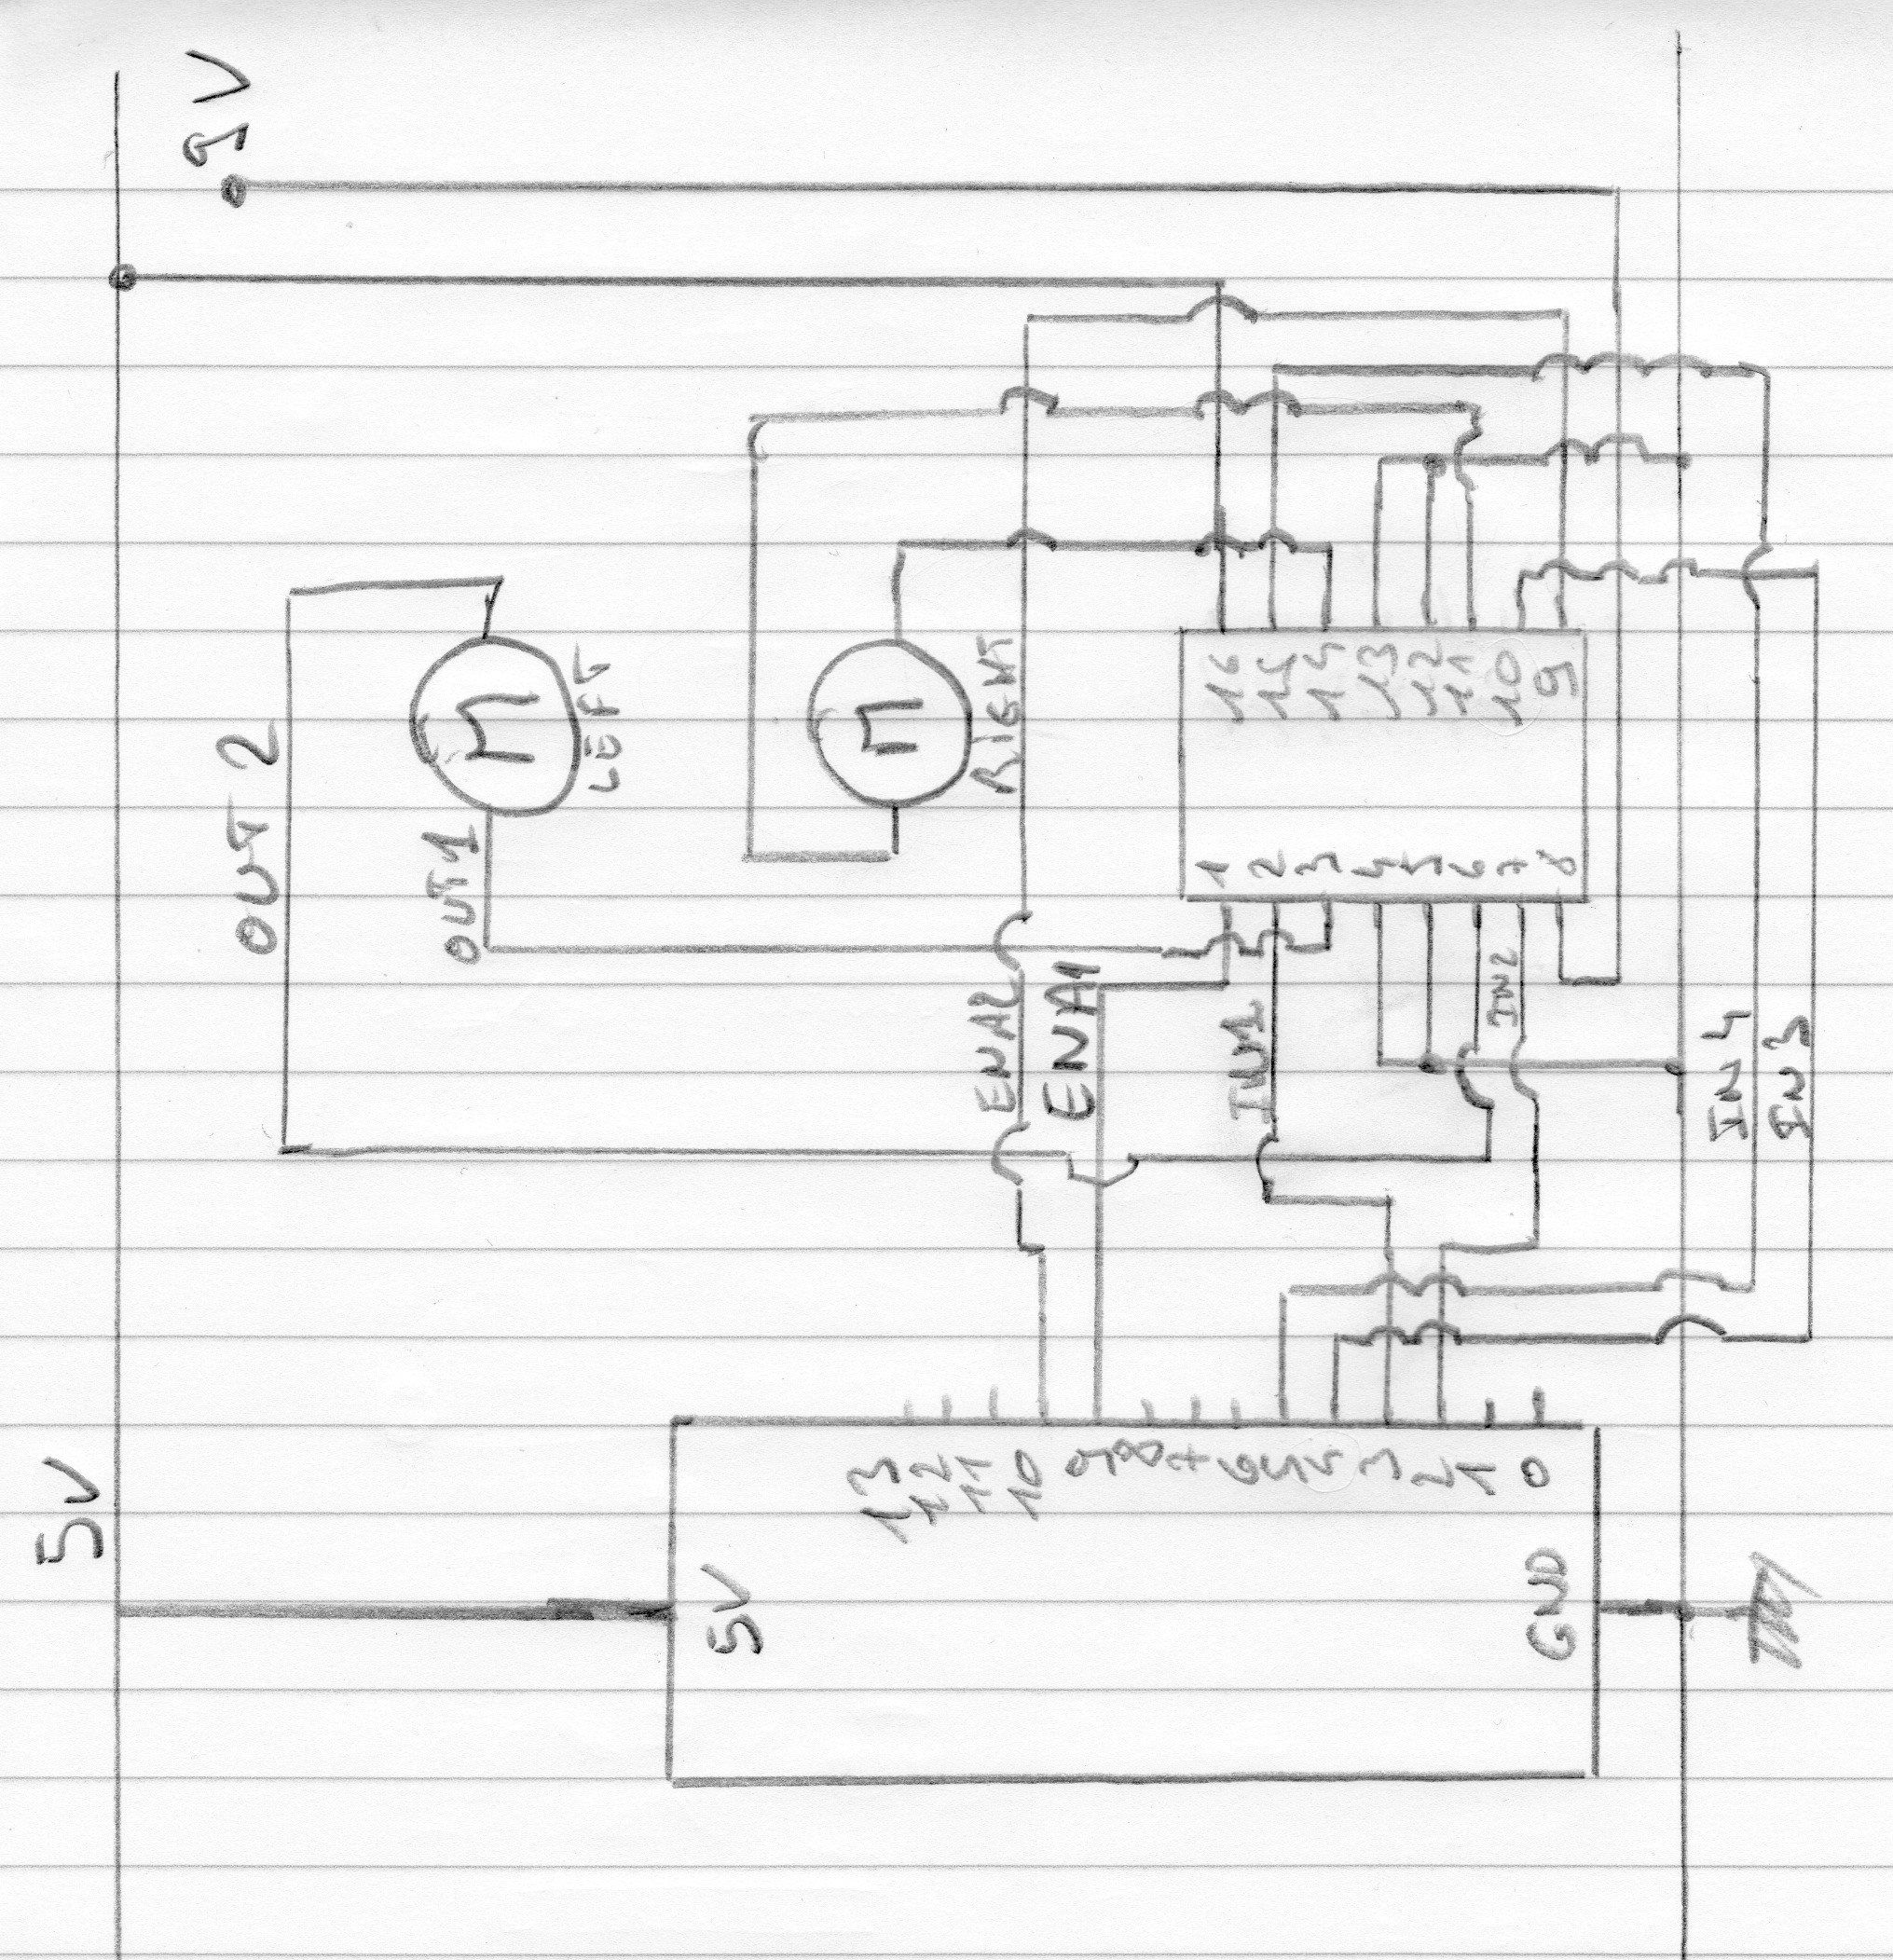 5V
9V
OUT 2
OUT1
M
LEFT
5V
M
RIGHT
13
12
11
10
9
8
7
6
5
4
3
2
1
0
GND
ENA2
ENA1
IN1
IN2
1
2
3
4
5
6
7
8
16
15
14
13
12
11
10
9
IN4
IN3